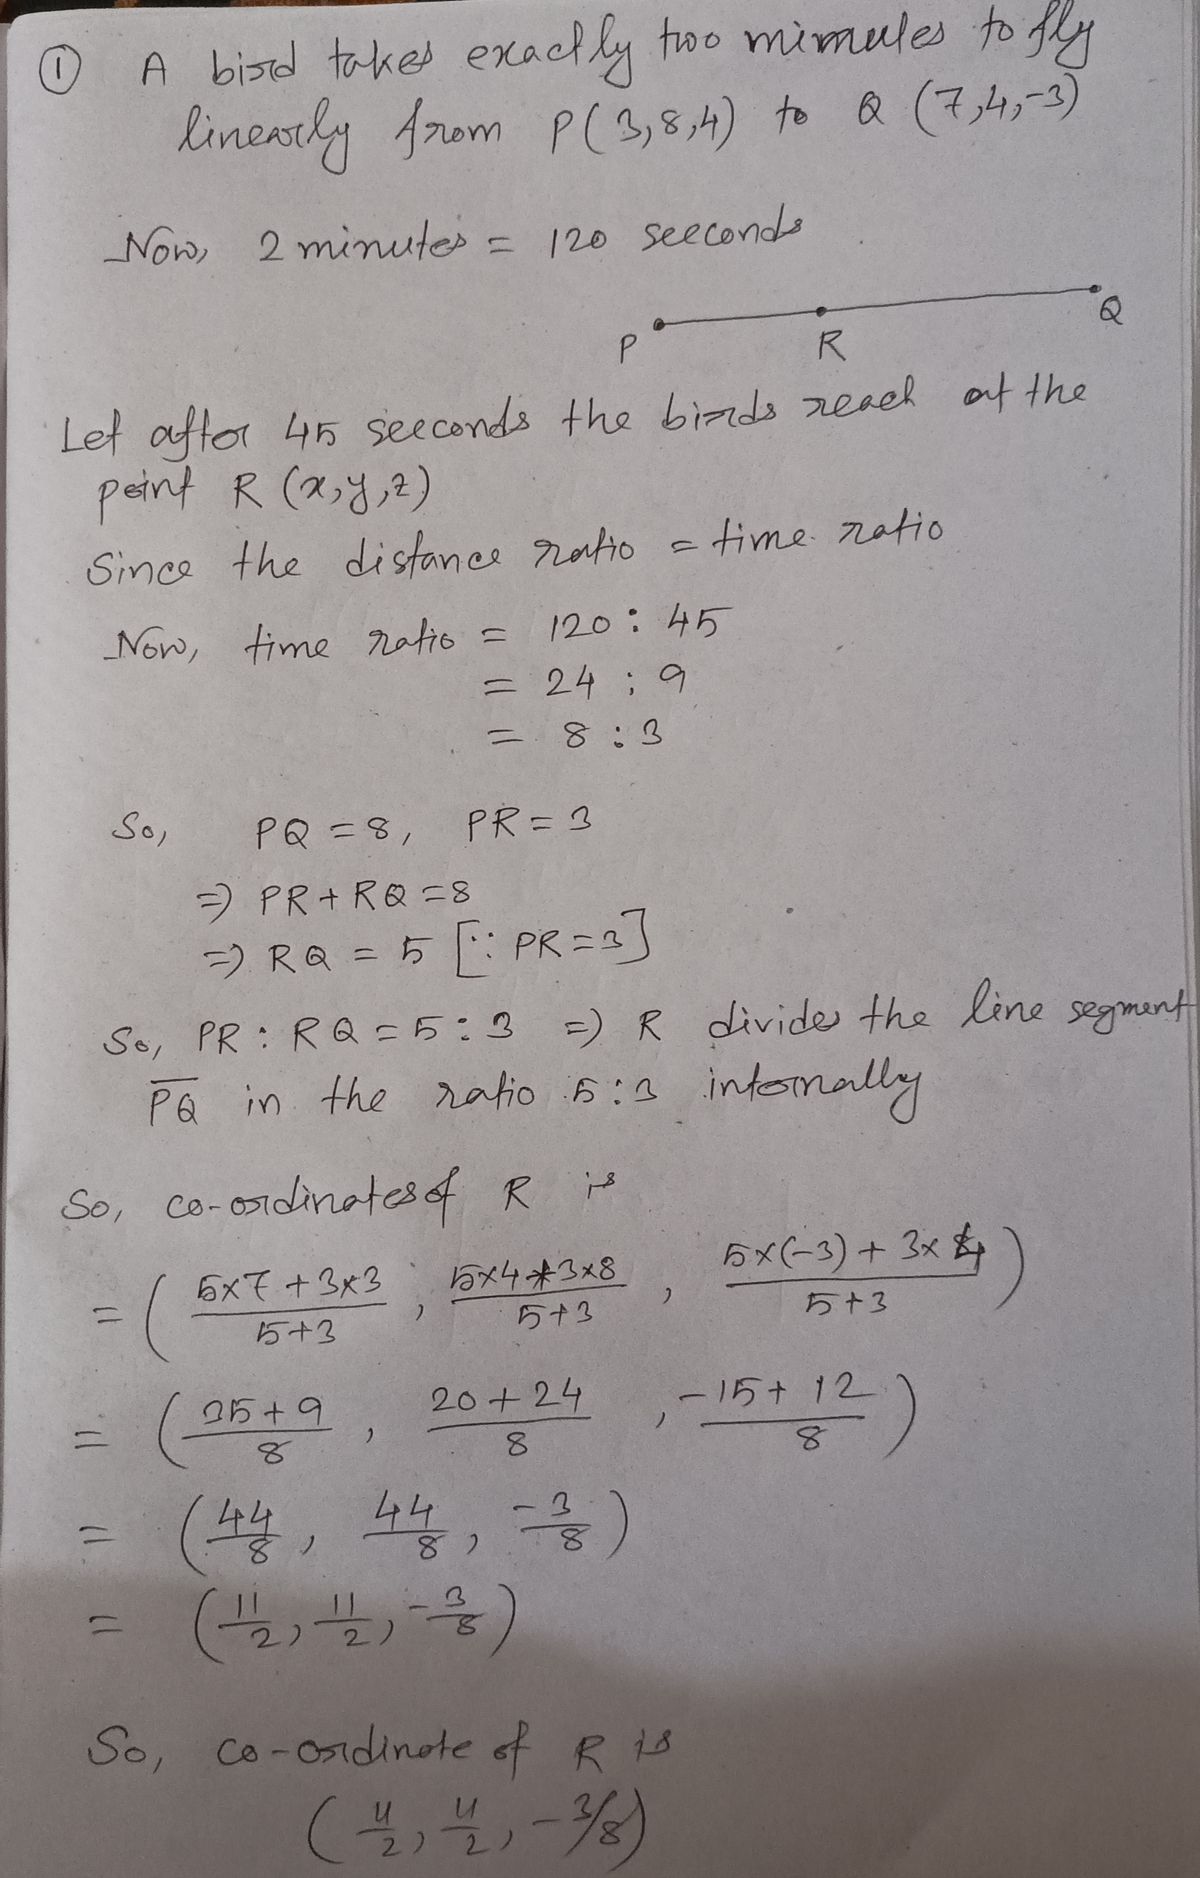 ① A bird takes exactly two minutes to fly
linearly from P(3,8,4) to Q (7,4,-3)
Now, 2 minutes = 120 seeconds
P R Q
Let after 45 seeconds the birds reach at the
point R (x,y,z)
Since the distance ratio = time ratio
Now, time ratio = 120 : 45
= 24 : 9
= 8 : 3
So, PQ = 8, PR = 3
=) PR + RQ = 8
=) RQ = 5 [∵ PR = 3]
So, PR : RQ = 5 : 3 =) R divides the line segment
P̅Q̅ in the ratio 5:3 internally
So, co-ordinates of R is
= ( (5x7 + 3x3)/(5+3) , (5x4 + 3x8)/(5+3) , (5x(-3) + 3x4)/(5+3) )
= ( (35+9)/8 , (20+24)/8 , (-15+12)/8 )
= ( 44/8 , 44/8 , -3/8 )
= ( 11/2 , 11/2 , -3/8 )
So, co-ordinate of R is
( 11/2 , 11/2 , -3/8 )